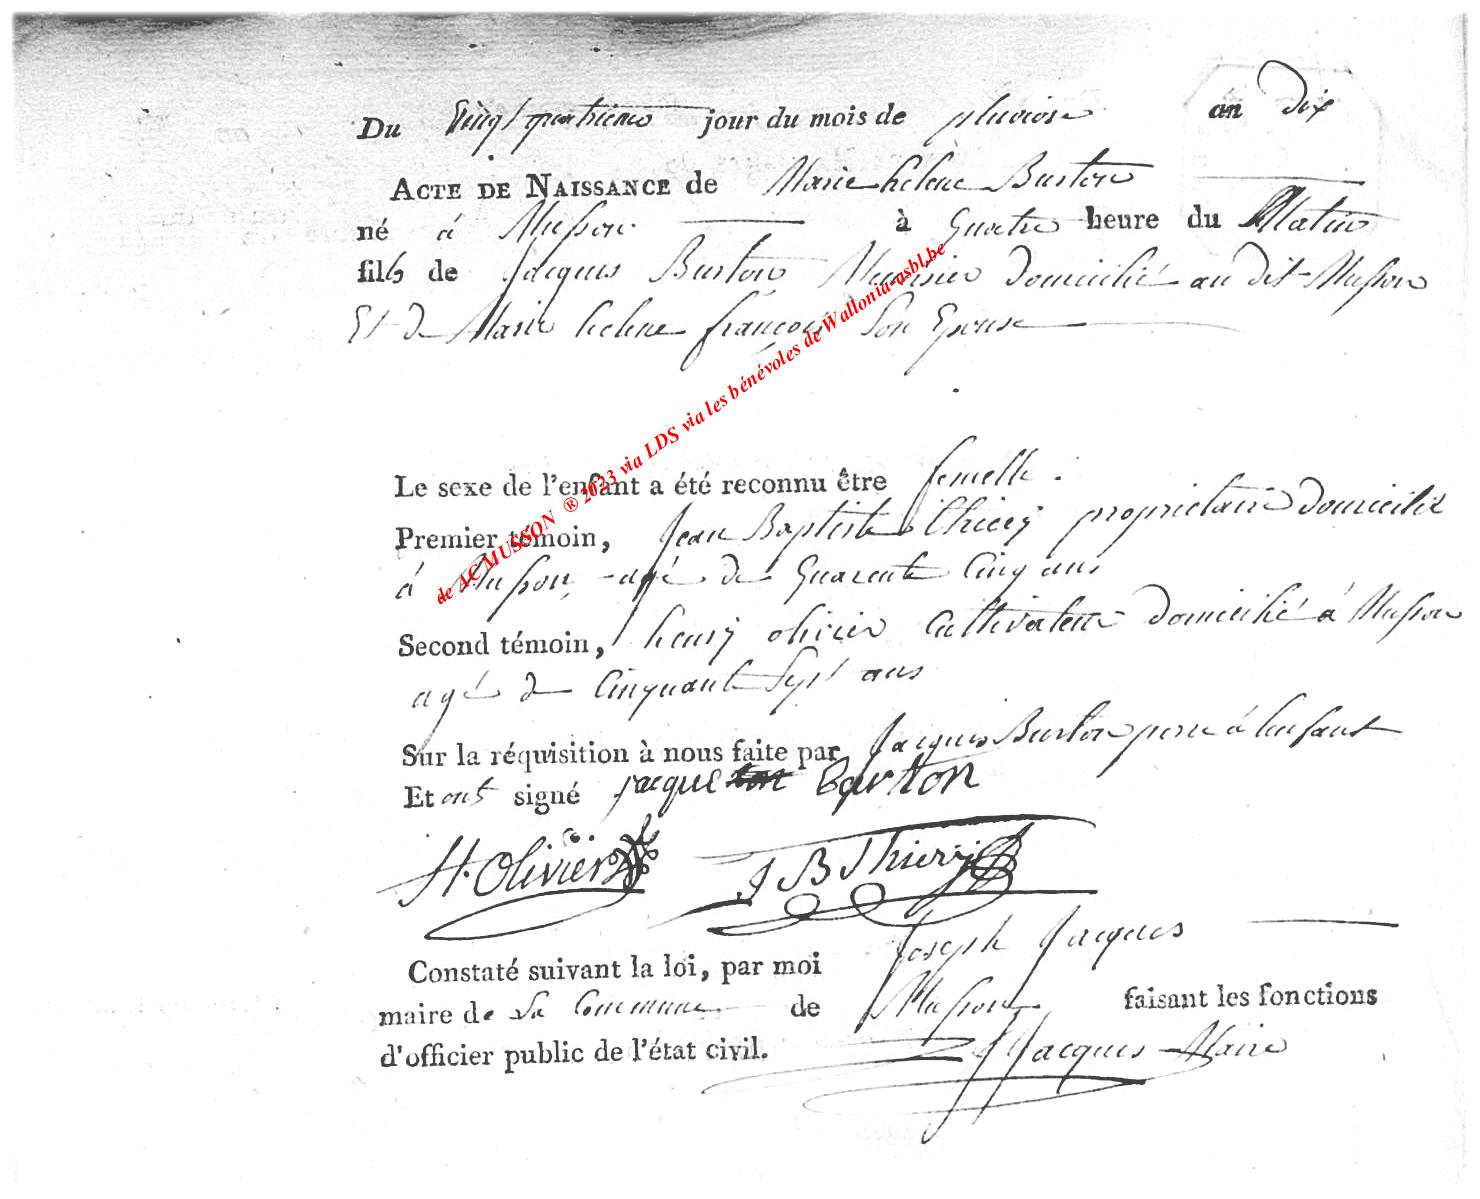 Du Vingt quatrieme jour du mois de pluviose an dix
ACTE DE NAISSANCE de Marie helene Burton
né à Musson à Quatre heure du Matin
fille de Jacques Burton Menusier domicilié au dit Musson
Et de Marie helene françois Son Epouse
Le sexe de l'enfant a été reconnu être femelle.
Premier témoin, Jean Baptiste thiery proprietaire domicilié
à Musson, agé de Quarente Cinq ans
Second témoin, henry olivier Cultivateur domicilié à Musson
agé de Cinquante Sept ans
Sur la réquisition à nous faite par Jacques Burton pere à lenfant
Et ont signé jacque Burton
H. Olivier J B Thiery
Constaté suivant la loi, par moi Joseph Jacques
maire de La Commune de Musson faisant les fonctions
d'officier public de l'état civil. J Jacques Maire
de AC MUSSON ® 2023 via LDS via les bénévoles de Wallonia-asbl.be